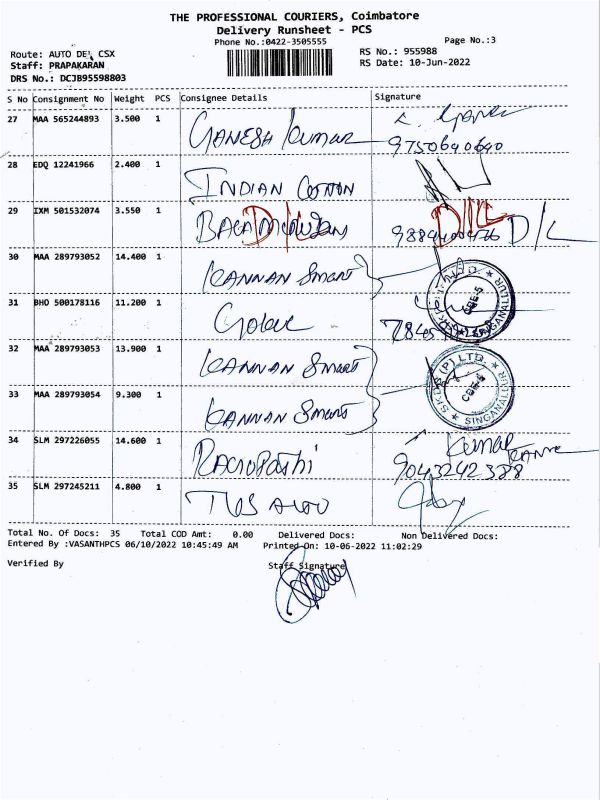 THE PROFESSIONAL COURIERS, Coimbatore
Delivery Runsheet - PCS
Phone No.:0422-3505555
Page No.:3
Route: AUTO DEL CSX
RS No.: 955988
Staff: PRAPAKARAN
RS Date: 10-Jun-2022
DRS No.: DCJB95598803
S No Consignment No Weight PCS Consignee Details Signature
27 MAA 565244893 3.500 1 GANESH Kumar
9750640640
28 EDQ 12241966 2.400 1 INDIAN COTTON
29 IXM 501532074 3.550 1 D/L D/L D/L
30 MAA 289793052 14.400 1 KANNAN Smart
31 BHO 500178116 11.200 1
32 MAA 289793053 13.900 1 KANNAN Smart
33 MAA 289793054 9.300 1 KANNAN Smart
SKDS (P) LTD. CBE-5 SINGANALLUR
34 SLM 297226055 14.600 1 Kumar
9043242388
35 SLM 297245211 4.800 1 TVS AUTO
Total No. Of Docs: 35 Total COD Amt: 0.00 Delivered Docs: Non Delivered Docs:
Entered By :VASANTHPCS 06/10/2022 10:45:49 AM Printed On: 10-06-2022 11:02:29
Verified By Staff Signature